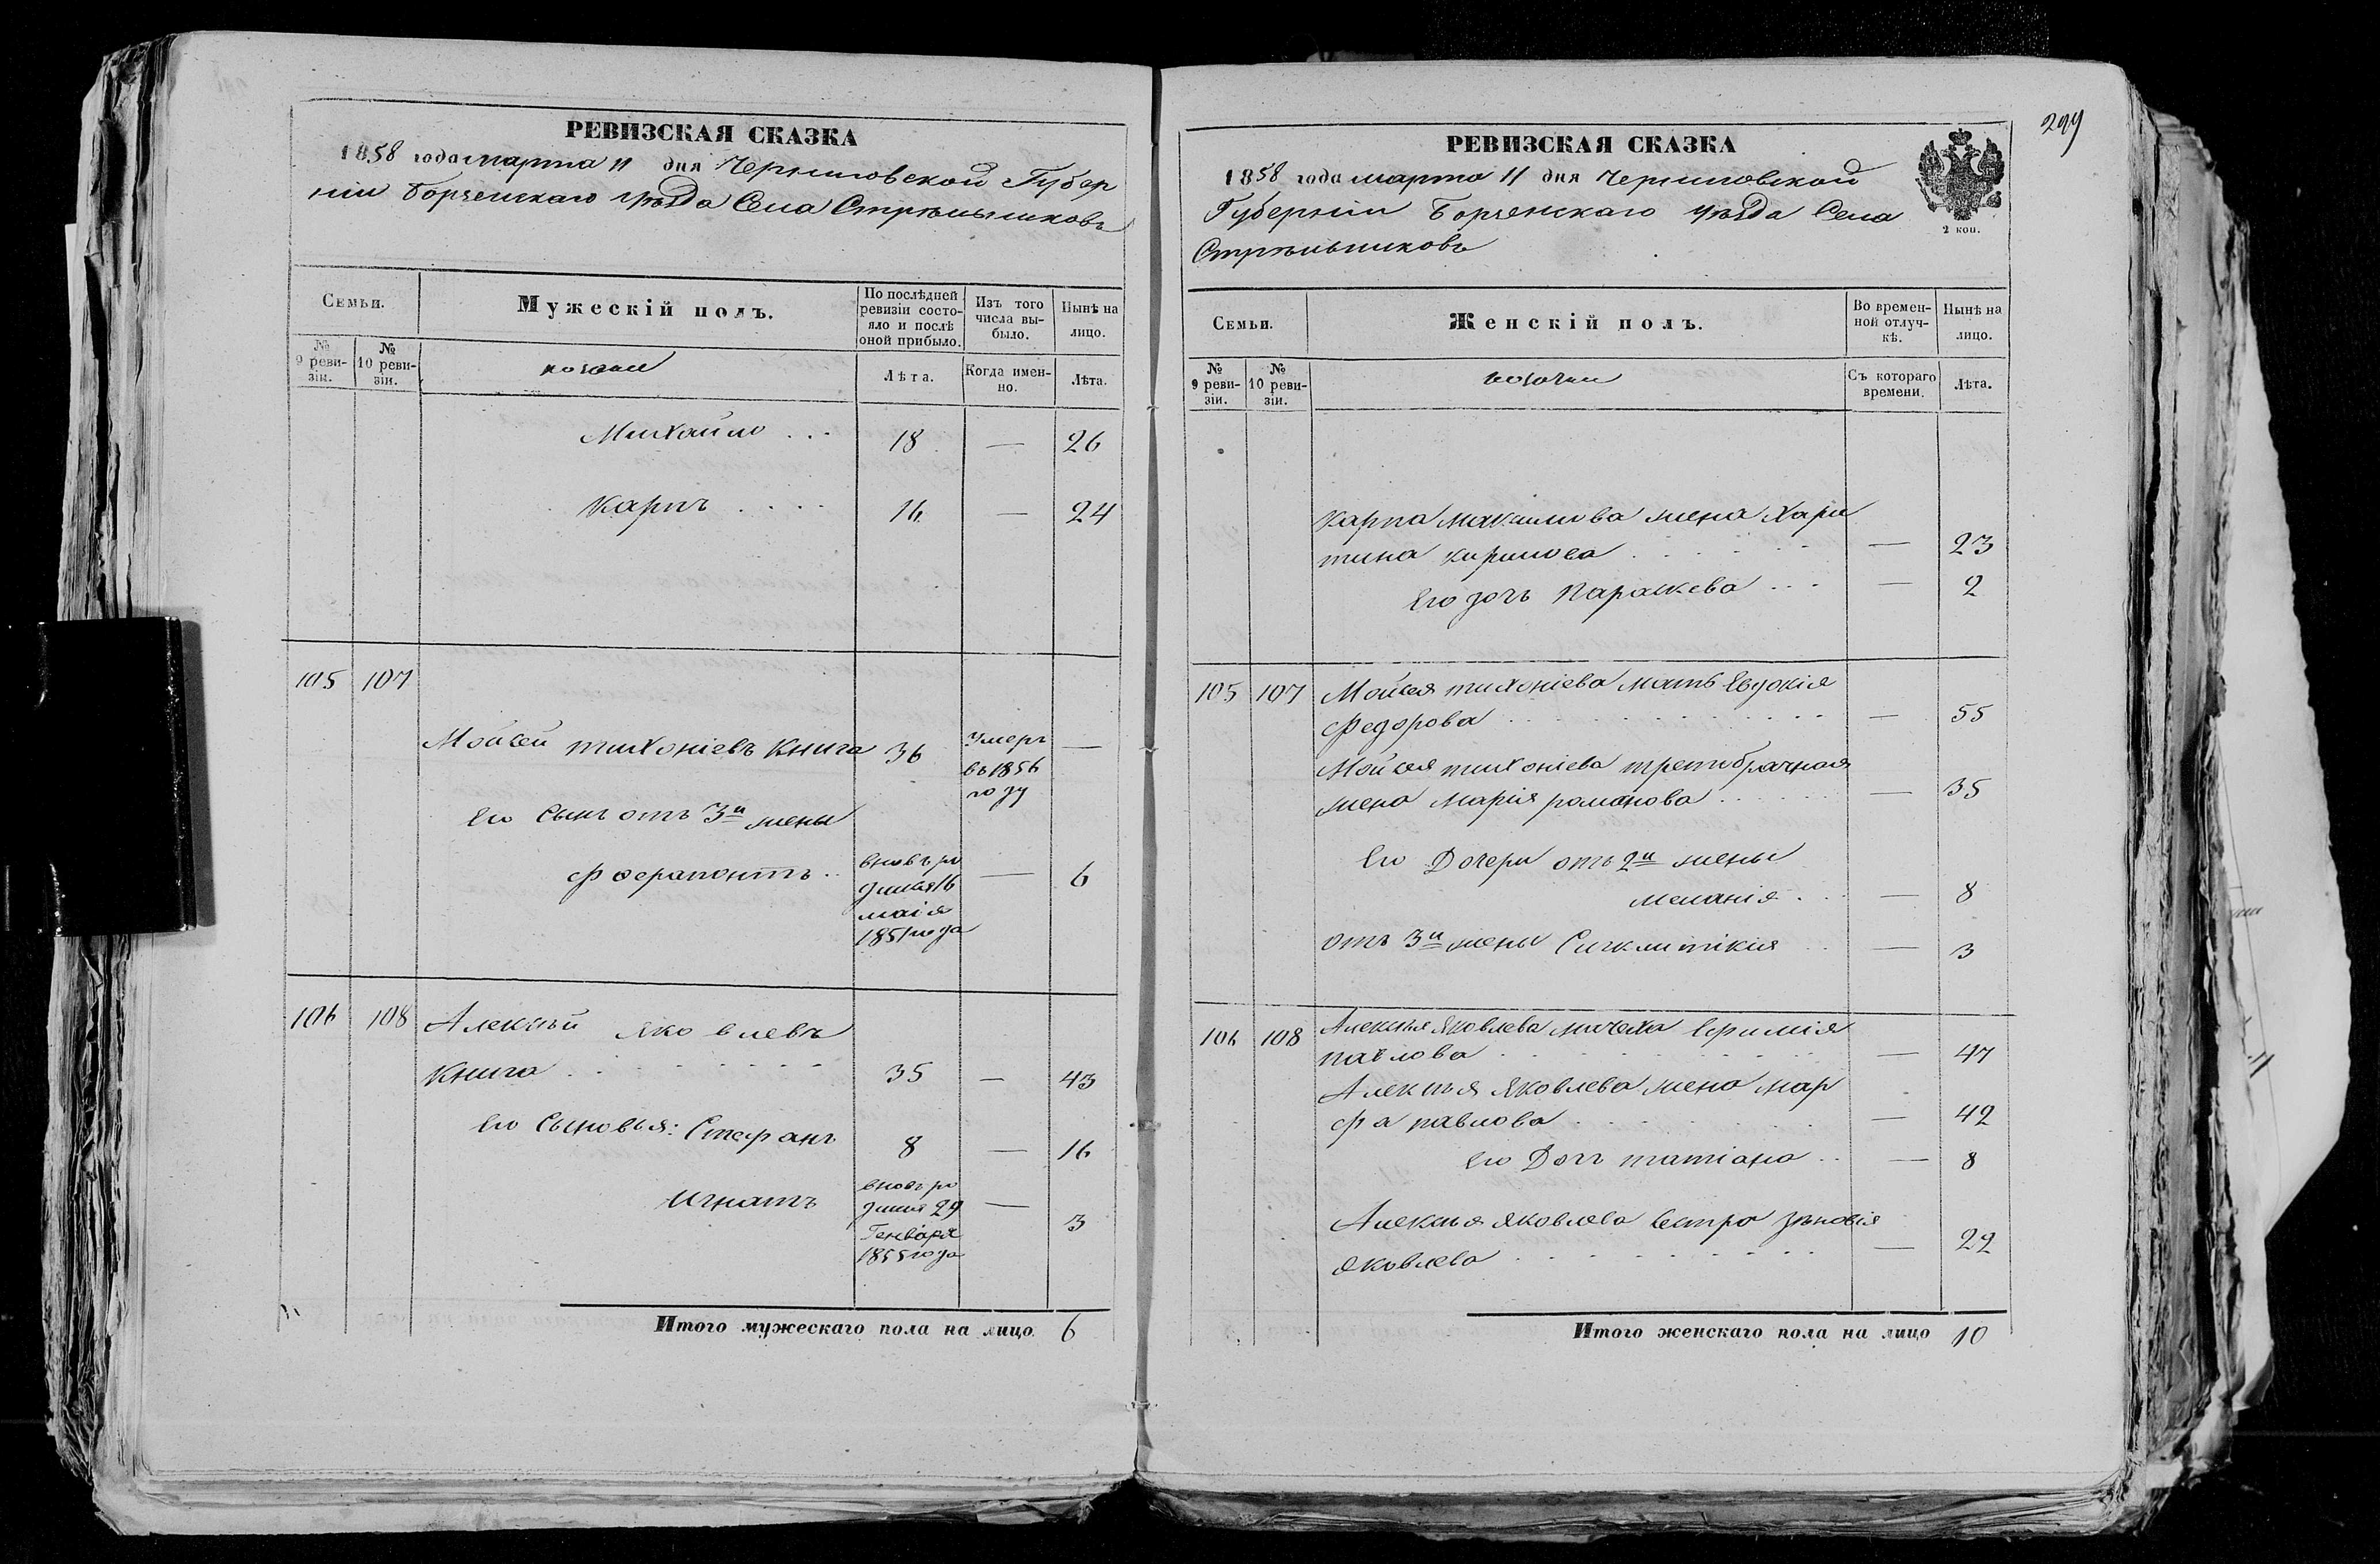 РЕВИЗСКАЯ СКАЗКА
1858 года марта 11 дня Черниговской Губер
ніи Борзенскаго уѣзда Села Стрѣльниковъ
Семьи.
Мужескій полъ.
По послѣдней ревизіи состояло и послѣ оной прибыло.
Изъ того числа выбыло.
Нынѣ на лицо.
№ 9 ревизіи.
№ 10 ревизіи.
козаки
Лѣта.
Когда именно.
Лѣта.
Михайло . . . 18 — 26
Карпъ . . . . 16 — 24
105 107
Мойсей Тихоніевъ Книга 36 умеръ —
въ 1856
году
Его Сынъ отъ 3й жены
Фоерапонтъ . . вновь ро — 6
дился 16
маія
1851 года
106 108 Алексѣй Яковлевъ
Книга . . . . . . . . . 35 — 43
Его Сыновья: Стефанъ 8 — 16
Игнатъ вновь ро — 3
дился 29
Генваря
1855 года
Итого мужескаго пола на лицо. 6
299
РЕВИЗСКАЯ СКАЗКА
1858 года марта 11 дня Черниговской
Губерніи Борзенскаго уѣзда Села
Стрѣльниковъ
2 коп.
Семьи.
Женскій полъ.
Во временной отлучкѣ.
Нынѣ на лицо.
№ 9 ревизіи.
№ 10 ревизіи.
козачки
Съ котораго времени.
Лѣта.
Карпа Максимова жена Хари
тина Кирилова . . . . . . — 23
Его дочь Параскева . . . — 2
105 107 Мойсея Тихоніева мать Евдокія
Федорова . . . . . . . . . — 55
Мойсея Тихоніева третобрачная
жена Марія Романова . . . . . — 35
Его Дочери отъ 2й жены
Меланія . . . — 8
отъ 3й жены Сигклитікія . . — 3
106 108 Алексѣя Яковлева мачеха Ефимія
Павлова . . . . . . . . . — 47
Алексѣя Яковлева жена Мар
фа Павлова . . . . . . . — 42
Его Дочь Татіана . . — 8
Алексѣя Яковлева Сестра Зѣновія
Яковлева . . . . . . . . . — 22
Итого женскаго пола на лицо 10